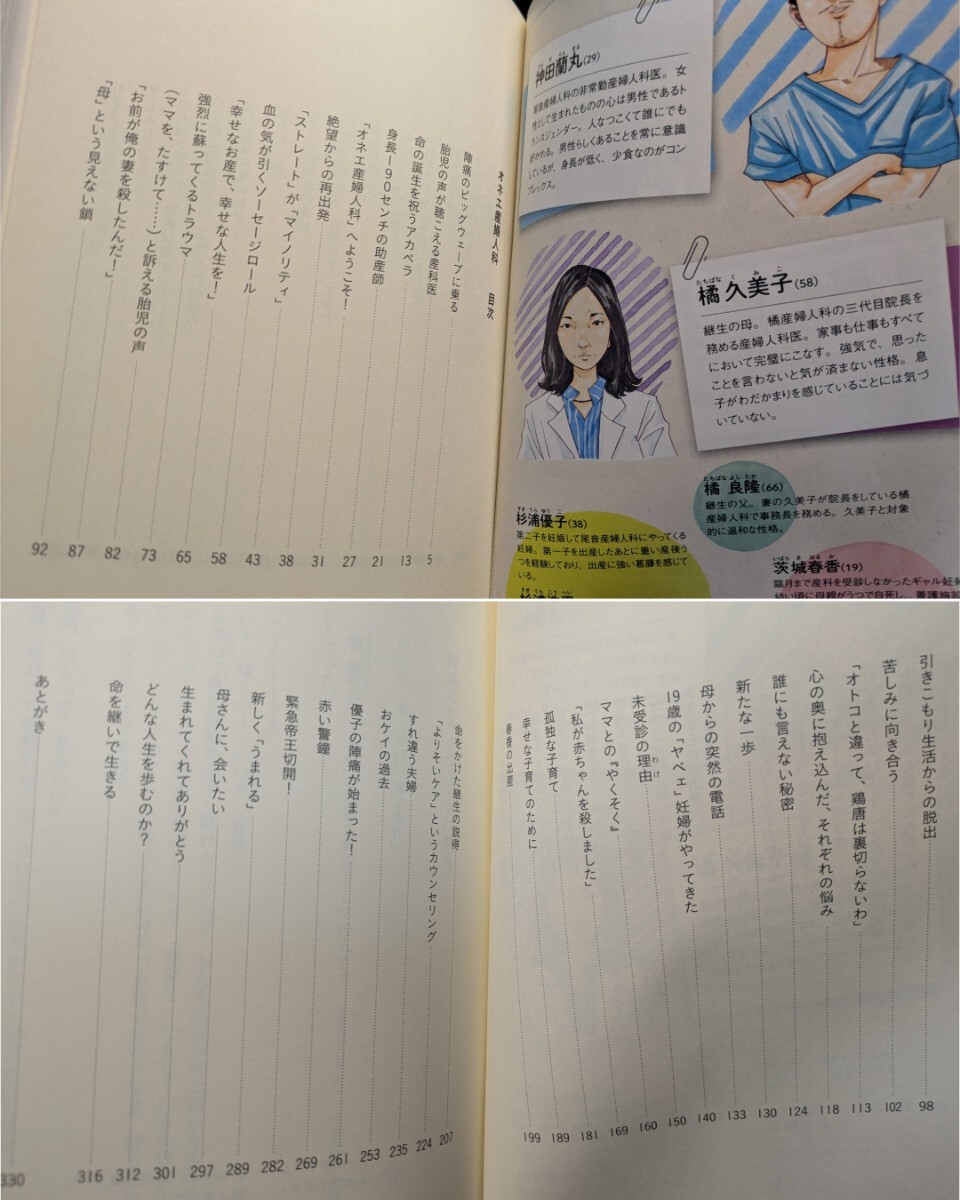 神田蘭丸(29)
尾音産婦人科の非常勤産婦人科医。女
性として生まれたものの心は男性であるト
ランスジェンダー。人なつこくて誰にでも
好かれる。男性らしくあることを常に意識
しているが、身長が低く、少食なのがコン
プレックス。
たちばな くみこ
橘 久美子(58)
継生の母。橘産婦人科の三代目院長を
務める産婦人科医。家事も仕事もすべて
において完璧にこなす。強気で、思った
ことを言わないと気が済まない性格。息
子がわだかまりを感じていることには気づ
いていない。
たちばな よしたか
橘 良隆(66)
継生の父。妻の久美子が院長をしている橘
産婦人科で事務長を務める。久美子と対象
的に温和な性格。
すぎうら ゆうこ
杉浦優子(38)
第二子を妊娠して尾音産婦人科にやってくる
妊婦。第一子を出産したあとに重い産後う
つを経験しており、出産に強い葛藤を感じて
いる。
いばらき はるか
茨城春香(19)
臨月まで産科を受診しなかったギャル妊婦
幼い頃に母親がうつで自死し、養護施設
すぎうら こうへい
オネエ産婦人科 目次
陣痛のビッグウェーブに乗る 5
胎児の声が聴こえる産科医 13
命の誕生を祝うアカペラ 21
身長190センチの助産師 27
「オネエ産婦人科」へようこそ! 31
絶望からの再出発 38
「ストレート」が「マイノリティ」 43
血の気が引くソーセージロール 58
「幸せなお産で、幸せな人生を!」 65
強烈に蘇ってくるトラウマ 73
(ママを、たすけて……)と訴える胎児の声 82
「お前が俺の妻を殺したんだ!」 87
「母」という見えない鎖 92
引きこもり生活からの脱出 98
苦しみに向き合う 102
「オトコと違って、鶏唐は裏切らないわ」 113
心の奥に抱え込んだ、それぞれの悩み 118
誰にも言えない秘密 124
新たな一歩 130
母からの突然の電話 133
19歳の「ヤベェ」妊婦がやってきた 140
未受診の理由 150
わけ
ママとの『やくそく』 160
「私が赤ちゃんを殺しました」 169
孤独な子育て 181
幸せな子育てのために 189
春香の出産 199
命をかけた継生の説得 207
「よりそいケア」というカウンセリング 224
すれ違う夫婦 235
おケイの過去 253
優子の陣痛が始まった! 261
赤い警鐘 269
緊急帝王切開! 282
新しく「うまれる」 289
母さんに、会いたい 297
生まれてくれてありがとう 301
どんな人生を歩むのか? 312
命を継いで生きる 316
あとがき 330